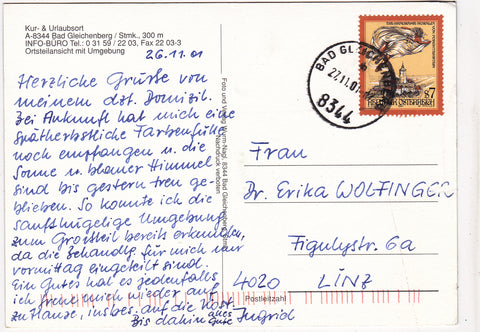 Kur- & Urlaubsort
A-8344 Bad Gleichenberg / Stmk., 300 m
INFO-BÜRO Tel.: 0 31 59 / 22 03, Fax 22 03-3
Ortsteilansicht mit Umgebung
26.11.01
Herzliche Grüsse von
meinem dzt. Domizil.
Bei Ankunft hat mich eine
spätherbstliche Farbenfülle
noch empfangen u. die
Sonne u. blauer Himmel
sind bis gestern treu ge-
blieben. So konnte ich die
sanfthügelige Umgebung
zum Großteil bereits erkunden,
da die Behandlg. für mich nur
vormittag eingeteilt sind.
Ein Gutes hat es jedenfalls
ich freue mich wieder auf
zu Hause, insbes. auf die Kost.
Bis dahin alles Gute Ingrid
Foto und Verlag Wurm-Nagl, 8344 Bad Gleichenberg
Nachdruck verboten
BAD GLEICHENBERG
22.11.01
8344
S 7
REPUBLIK ÖSTERREICH
Frau
Dr. Erika WOLFINGER
Figulystr. 6a
4020 LINZ
Postleitzahl